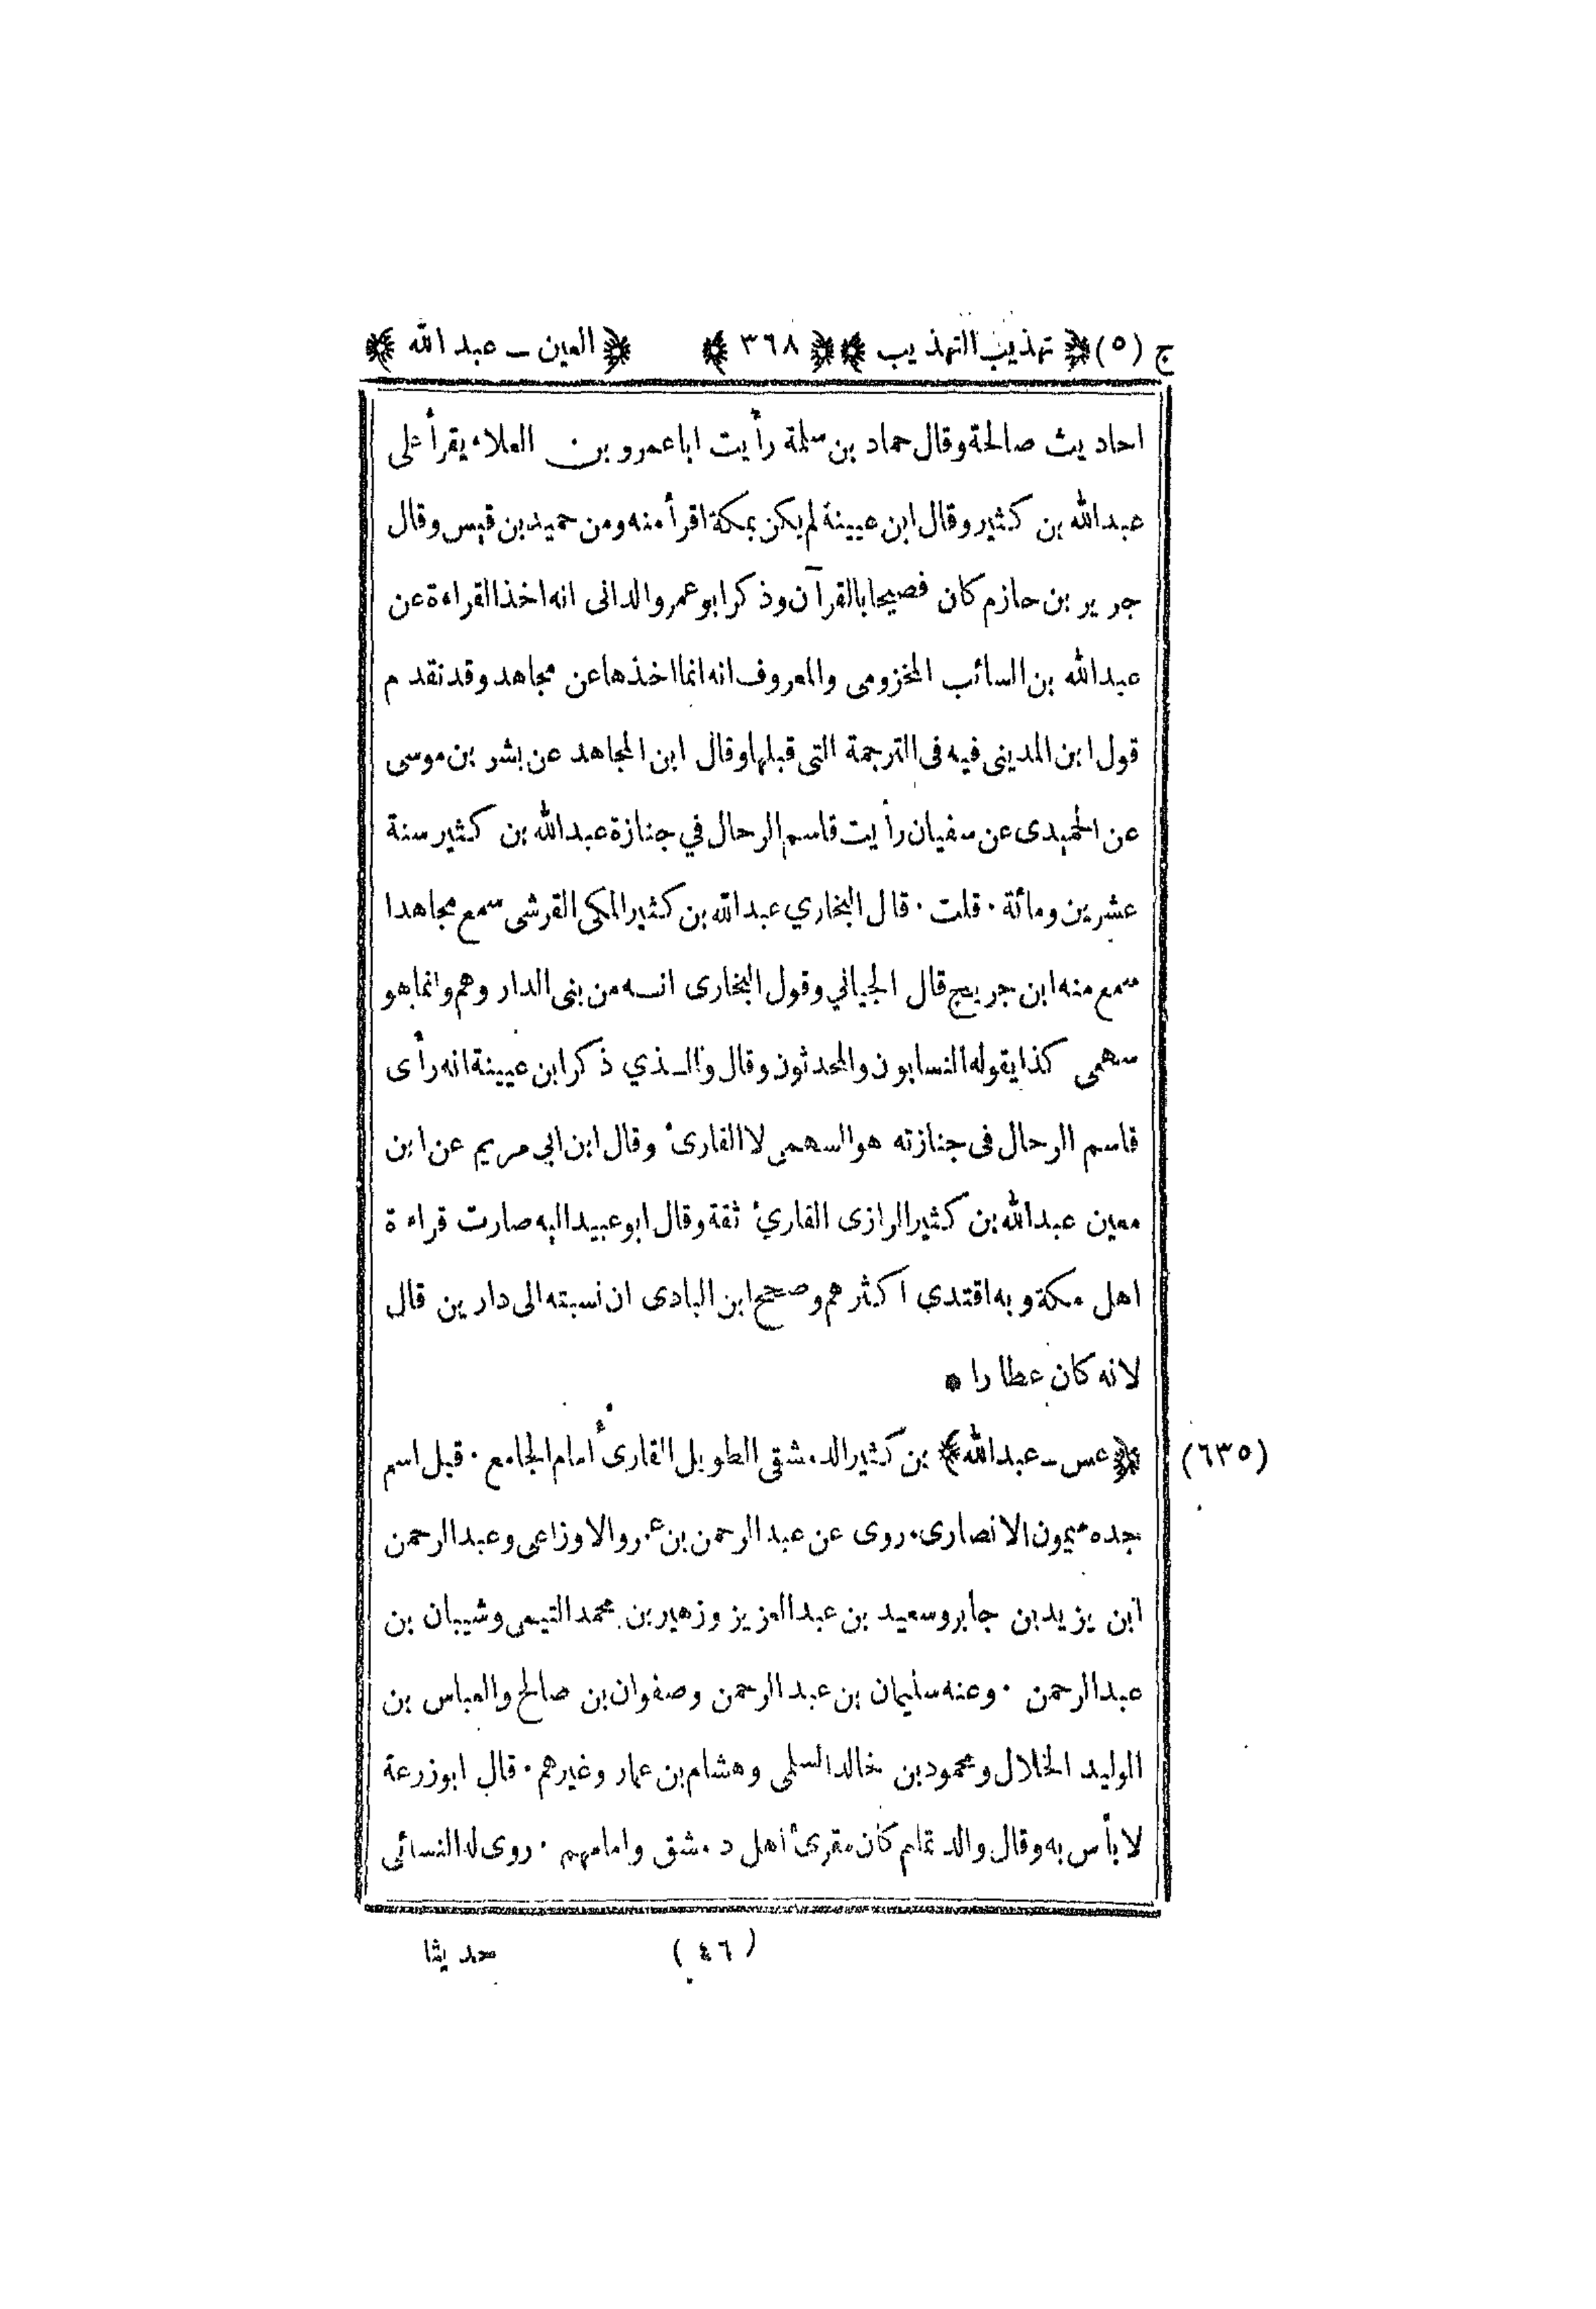 ج (٥) ﴿ تهذيب التهذيب ﴾ ﴿ ٣٦٨ ﴾ ﴿ العين ــ عبد الله ﴾
احاديث صالحة وقال حماد بن سلمة رأيت ابا عمرو بن العلاء يقرأ على
عبدالله بن كثير وقال ابن عيينة لم يكن بمكة اقرأ منه ومن حميد بن قيس وقال
جرير بن حازم كان فصيحا بالقرآن وذكر ابو عمرو الدانى انه اخذ القراءة عن
عبدالله بن السائب المخزومى والمعروف انه انما اخذها عن مجاهد وقد تقدم
قول ابن المدينى فيه فى الترجمة التى قبلها وقال ابن المجاهد عن بشر بن موسى
عن الحميدى عن سفيان رأيت قاسم الرحال في جنازة عبدالله بن كثير سنة
عشرين ومائة · قلت · قال البخاري عبدالله بن كثير المكى القرشى سمع مجاهدا
سمع منه ابن جريج قال الجياني وقول البخارى انه من بنى الدار وهم وانما هو
سهمى كذا يقوله النسابون والمحدثون وقال والذي ذكر ابن عيينة انه رأى
قاسم الرحال فى جنازته هو السهمى لا القارئ وقال ابن ابي مريم عن ابن
معين عبدالله بن كثير الرازى القارئ ثقة وقال ابو عبيد اليه صارت قراءة
اهل مكة وبه اقتدي اكثرهم وصحح ابن البادى ان نسبته الى دارين قال
لانه كان عطارا *
(٦٣٥) ﴿ عس ــ عبدالله ﴾ بن كثير الدمشقى الطويل القارئ امام الجامع · قيل اسم
جده ميمون الانصارى · روى عن عبدالرحمن بن عمرو الاوزاعى وعبدالرحمن
ابن يزيد بن جابر وسعيد بن عبد العزيز وزهير بن محمد التيمى وشيبان بن
عبدالرحمن · وعنه سليمان بن عبد الرحمن وصفوان بن صالح والعباس بن
الوليد الخلال ومحمود بن خالد السلمى وهشام بن عمار وغيرهم · قال ابو زرعة
لا بأس به وقال والد تمام كان مقرئ اهل دمشق وامامهم · روى له النسائى
(٤٦) حديثا